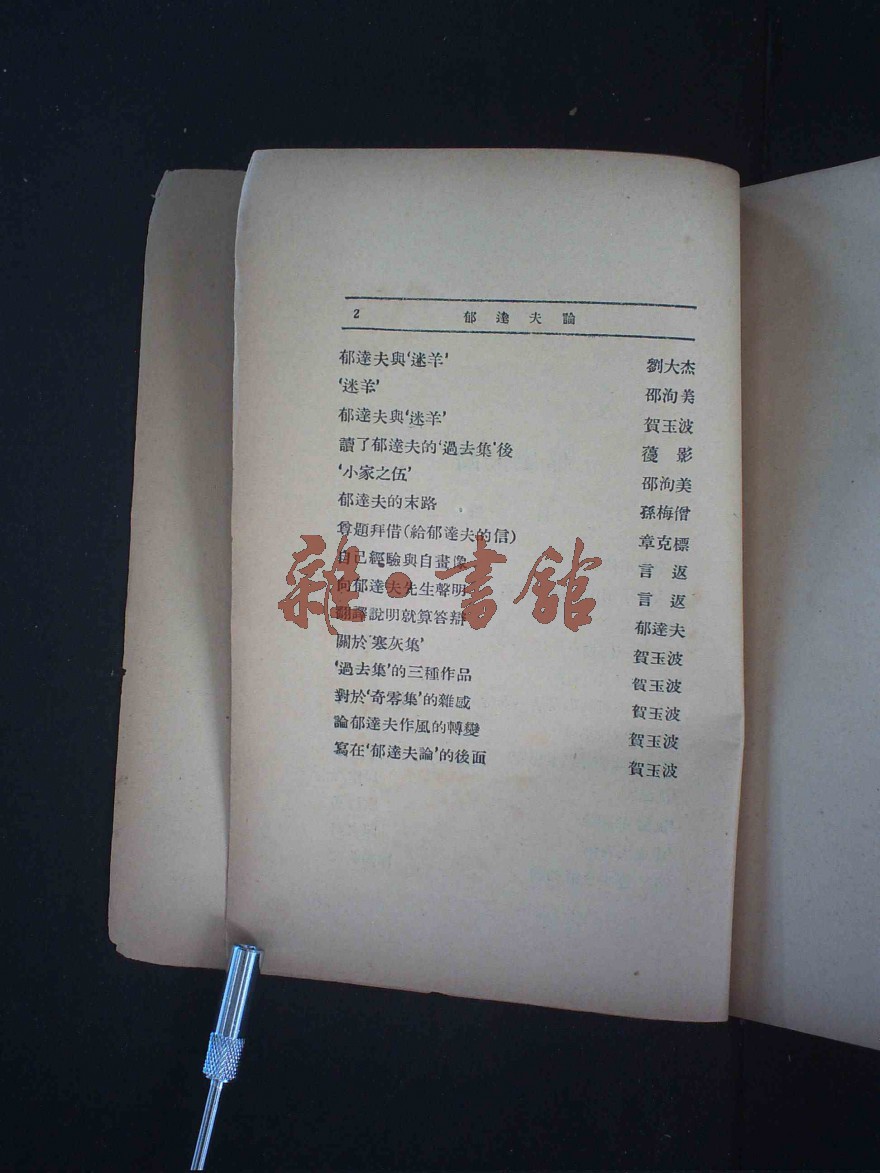 2 郁達夫論
郁達夫與‘迷羊’ 劉大杰
‘迷羊’ 邵洵美
郁達夫與‘迷羊’ 賀玉波
讀了郁達夫的‘過去集’後 影
‘小家之伍’ 邵洵美
郁達夫的末路 孫梅僧
尊題拜借(給郁達夫的信) 章克標
自己經驗與自畫像 言返
向郁達夫先生聲明 言返
翻譯說明就算答辯 郁達夫
關於‘寒灰集’ 賀玉波
‘過去集’的三種作品 賀玉波
對於‘奇零集’的雜感 賀玉波
論郁達夫作風的轉變 賀玉波
寫在‘郁達夫論’的後面 賀玉波
雜·書館